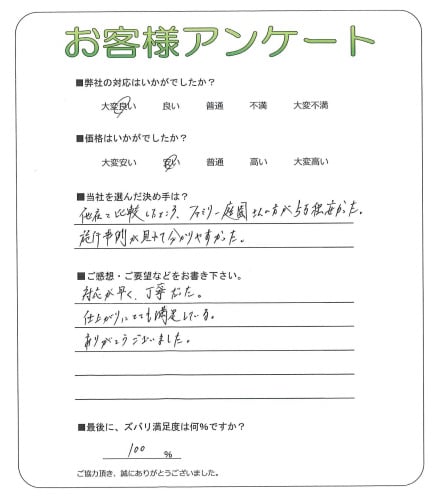 お客様アンケート
■弊社の対応はいかがでしたか?
大変良い 良い 普通 不満 大変不満
■価格はいかがでしたか?
大変安い 安い 普通 高い 大変高い
■当社を選んだ決め手は?
他店と比較したところ、ファミリー庭園さんの方が5万程安かった。
施行事例が見れて分かりやすかった。
■ご感想・ご要望などをお書き下さい。
対応が早く、丁寧だった。
仕上がりにとても満足している。
ありがとうございました。
■最後に、ズバリ満足度は何%ですか?
100 %
ご協力頂き、誠にありがとうございました。